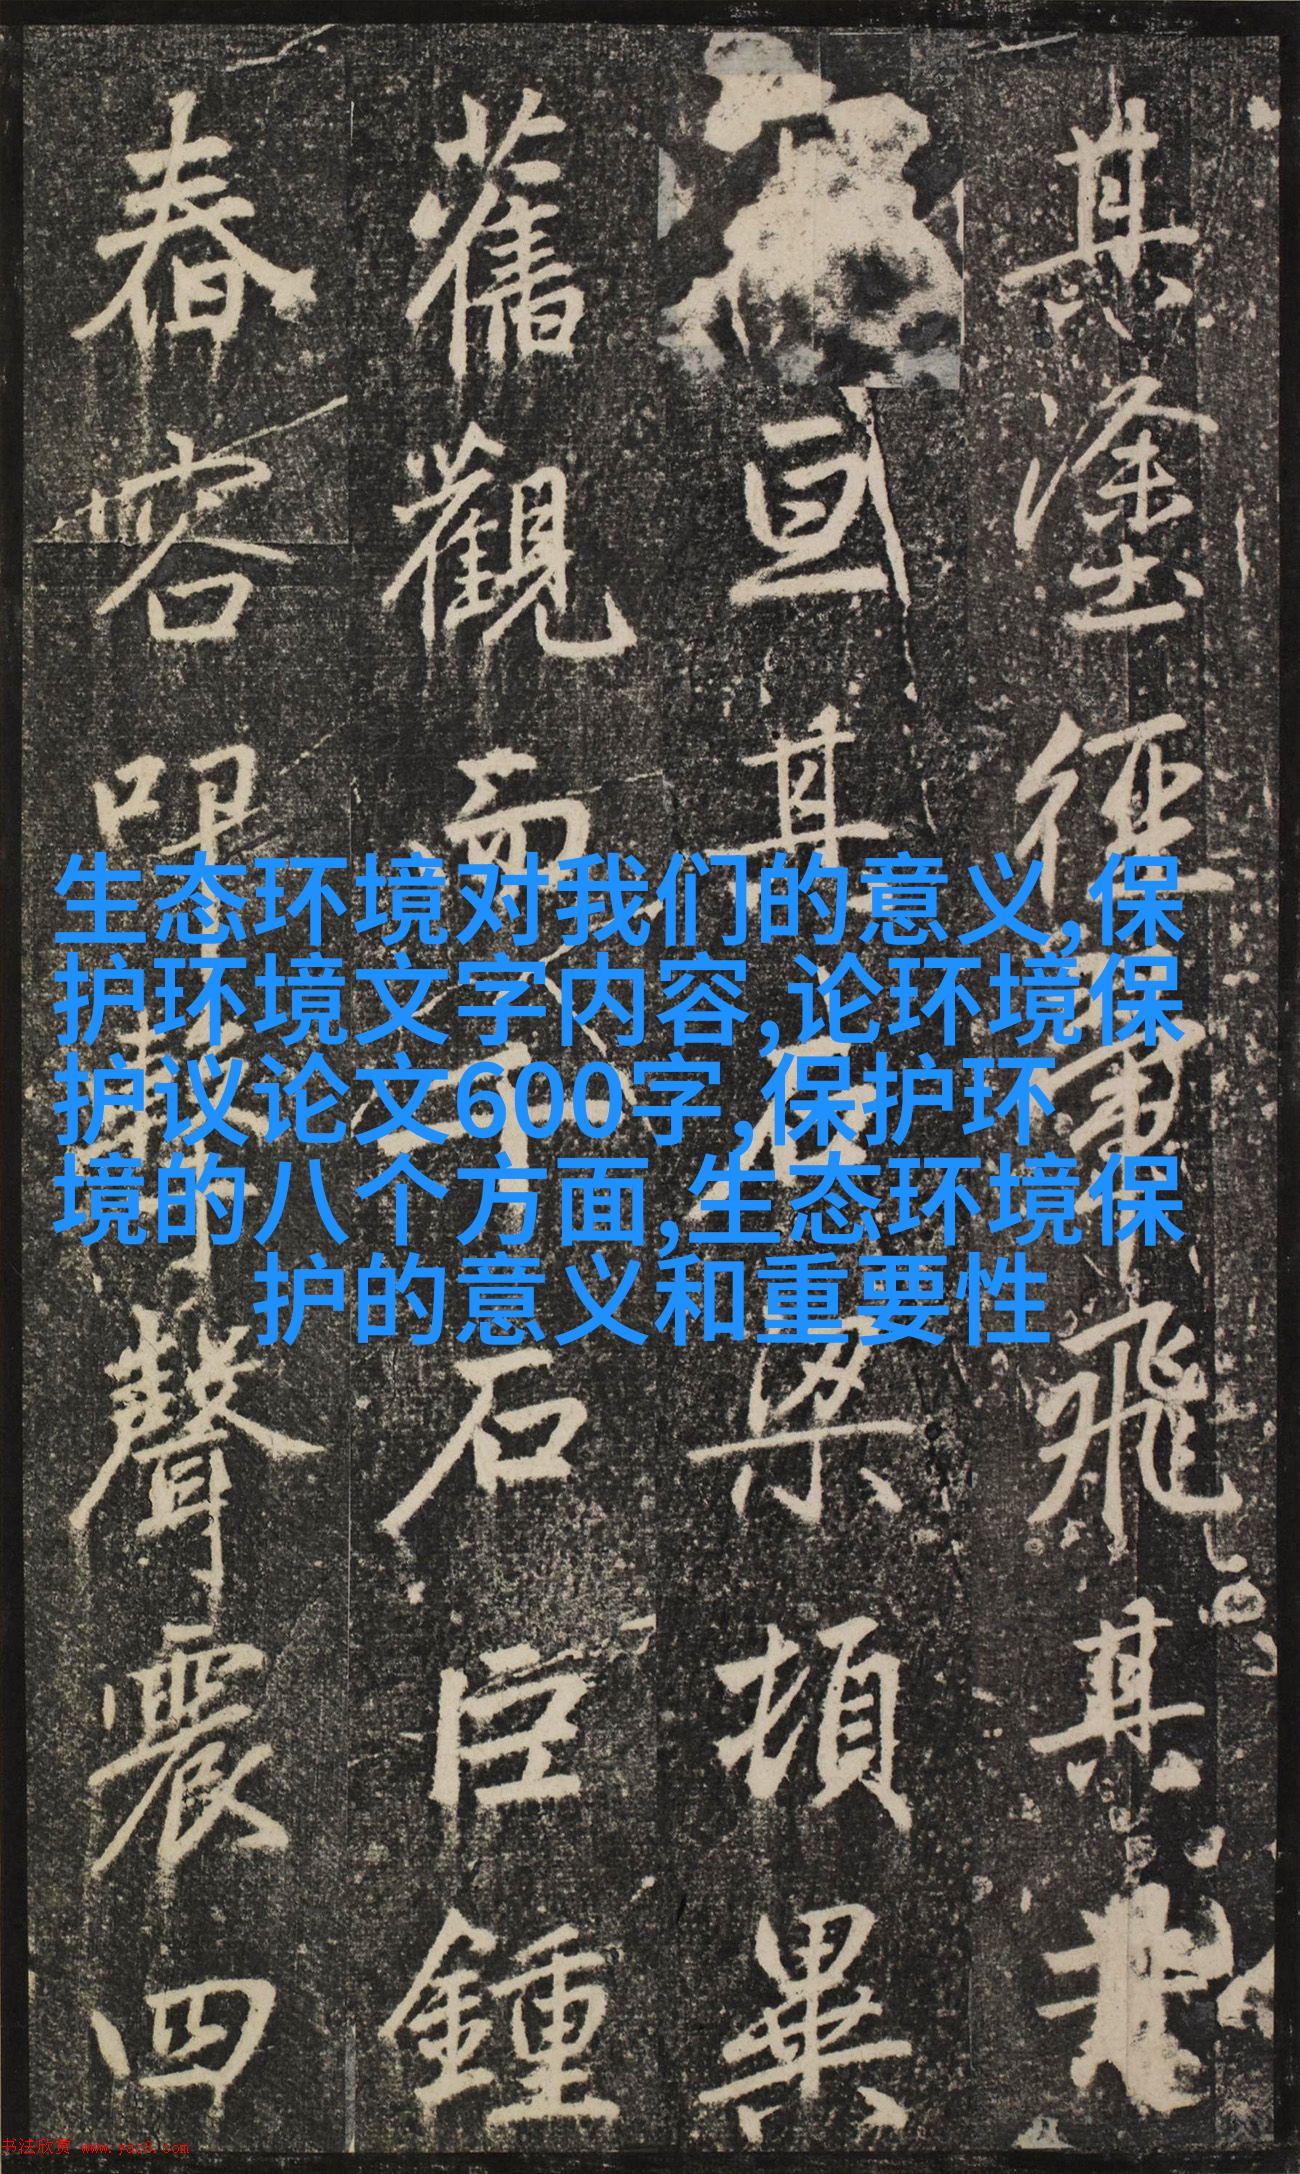 其塗徑軍飛其
亘其石梁頓異
舊觀而石巨鍾
春容聲震四
生态环境对我们的意义,保
护环境文字内容,论环境保
护议论文600字,保护环
境的八个方面,生态环境保
护的意义和重要性
书法欣赏 www.yac8.com